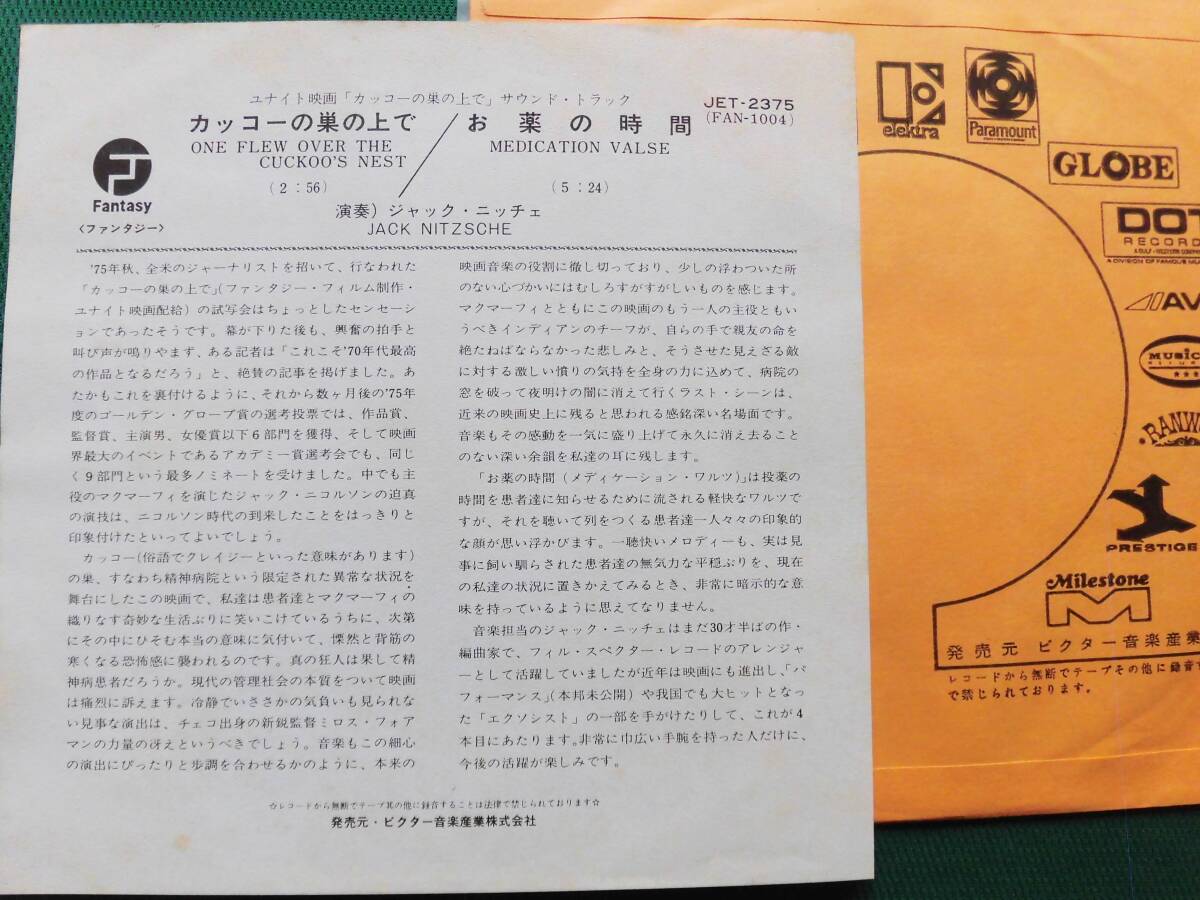 ユナイト映画「カッコーの巣の上で」サウンド・トラック
カッコーの巣の上で／お薬の時間
ONE FLEW OVER THE CUCKOO'S NEST
MEDICATION VALSE
(2:56)
(5:24)
JET-2375
(FAN-1004)
Fantasy
〈ファンタジー〉
演奏）ジャック・ニッチェ
JACK NITZSCHE
'75年秋、全米のジャーナリストを招いて、行なわれた
「カッコーの巣の上で」(ファンタジー・フィルム制作・
ユナイト映画配給）の試写会はちょっとしたセンセーシ
ョンであったそうです。幕が下りた後も、興奮の拍手と
叫び声が鳴りやまず、ある記者は「これこそ'70年代最高
の作品となるだろう」と、絶賛の記事を掲げました。あ
たかもこれを裏付けるように、それから数ヶ月後の'75年
度のゴールデン・グローブ賞の選考投票では、作品賞、
監督賞、主演男、女優賞以下6部門を獲得、そして映画
界最大のイベントであるアカデミー賞選考会でも、同じ
く9部門という最多ノミネートを受けました。中でも主
役のマクマーフィを演じたジャック・ニコルソンの迫真
の演技は、ニコルソン時代の到来したことをはっきりと
印象付けたといってよいでしょう。
カッコー(俗語でクレイジーといった意味があります)
の巣、すなわち精神病院という限定された異常な状況を
舞台にしたこの映画で、私達は患者達とマクマーフィの
織りなす奇妙な生活ぶりに笑いこけているうちに、次第
にその中にひそむ本当の意味に気付いて、慄然と背筋の
寒くなる恐怖感に襲われるのです。真の狂人は果して精
神病患者だろうか。現代の管理社会の本質をついて映画
は痛烈に訴えます。冷静でいささかの気負いも見られな
い見事な演出は、チェコ出身の新鋭監督ミロス・フォア
マンの力量の冴えというべきでしょう。音楽もこの細心
の演出にぴったりと歩調を合わせるかのように、本来の
映画音楽の役割に徹し切っており、少しの浮わついた所
のない心づかいにはむしろすがすがしいものを感じます。
マクマーフィとともにこの映画のもう一人の主役ともい
うべきインディアンのチーフが、自らの手で親友の命を
絶たねばならなかった悲しみと、そうさせた見えざる敵
に対する激しい憤りの気持を全身の力に込めて、病院の
窓を破って夜明けの闇に消えて行くラスト・シーンは、
近来の映画史上に残ると思われる感銘深い名場面です。
音楽もその感動を一気に盛り上げて永久に消え去ること
のない深い余韻を私達の耳に残します。
「お薬の時間（メディケーション・ワルツ)」は投薬の
時間を患者達に知らせるために流される軽快なワルツで
すが、それを聴いて列をつくる患者達一人々々の印象的
な顔が思い浮かびます。一聴快いメロディーも、実は見
事に飼い馴らされた患者達の無気力な平穏ぶりを、現在
の私達の状況に置きかえてみるとき、非常に暗示的な意
味を持っているように思えてなりません。
音楽担当のジャック・ニッチェはまだ30才半ばの作・
編曲家で、フィル・スペクター・レコードのアレンジャ
ーとして活躍していましたが近年は映画にも進出し、「パ
フォーマンス」(本邦未公開）や我国でも大ヒットとなっ
た「エクソシスト」の一部を手がけたりして、これが4
本目にあたります。非常に巾広い手腕を持った人だけに、
今後の活躍が楽しみです。
☆レコードから無断でテープ其の他に録音することは法律で禁じられております☆
発売元・ビクター音楽産業株式会社
elektra
Paramount
GLOBE
DOT
RECORD
AV
MUSIC
RANW
PRESTIGE
Milestone
発売元 ビクター音楽産業
レコードから無断でテープその他に録音
で禁じられております。